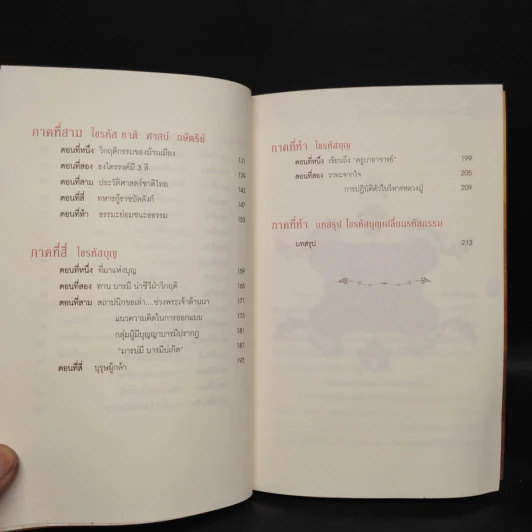 ภาคที่สาม ไขรหัส ชาติ ศาสน์ กษัตริย์
ตอนที่หนึ่ง วิกฤติกรรมของบ้านเมือง 131
ตอนที่สอง ธงไตรรงค์มี 3 สี
ตอนที่สาม ประวัติศาสตร์ชาติไทย
ตอนที่สี่ ทหารกู้ราชบัลลังก์ 147
ตอนที่ห้า ธรรมะย่อมชนะอธรรม 153
ภาคที่สี่ ไขรหัสบุญ
ตอนที่หนึ่ง ที่มาแห่งบุญ 159
ตอนที่สอง ทาน บารมี นำชีวีฝ่าวิกฤติ 165
ตอนที่สาม สถาปนิกขอเล่า....ช่วงพระเจ้าล้านนา 171
แนวความคิดในการออกแบบ 173
กลุ่มผู้มีบุญญาบารมีปรากฏ 181
"มารบ่มี บารมีบ่เกิด" 187
ตอนที่สี่ บุรุษผู้กล้า 193
ภาคที่ห้า ไขรหัสบุญ
ตอนที่หนึ่ง เขียนถึง "ครูบาอาจารย์" 199
ตอนที่สอง วาทะจากใจ 205
การปฏิบัติตัวในวิหารหลวงปู่ 209
ภาคที่ห้า บทสรุป ไขรหัสบุญเปลี่ยนรหัสกรรม
บทสรุป 213